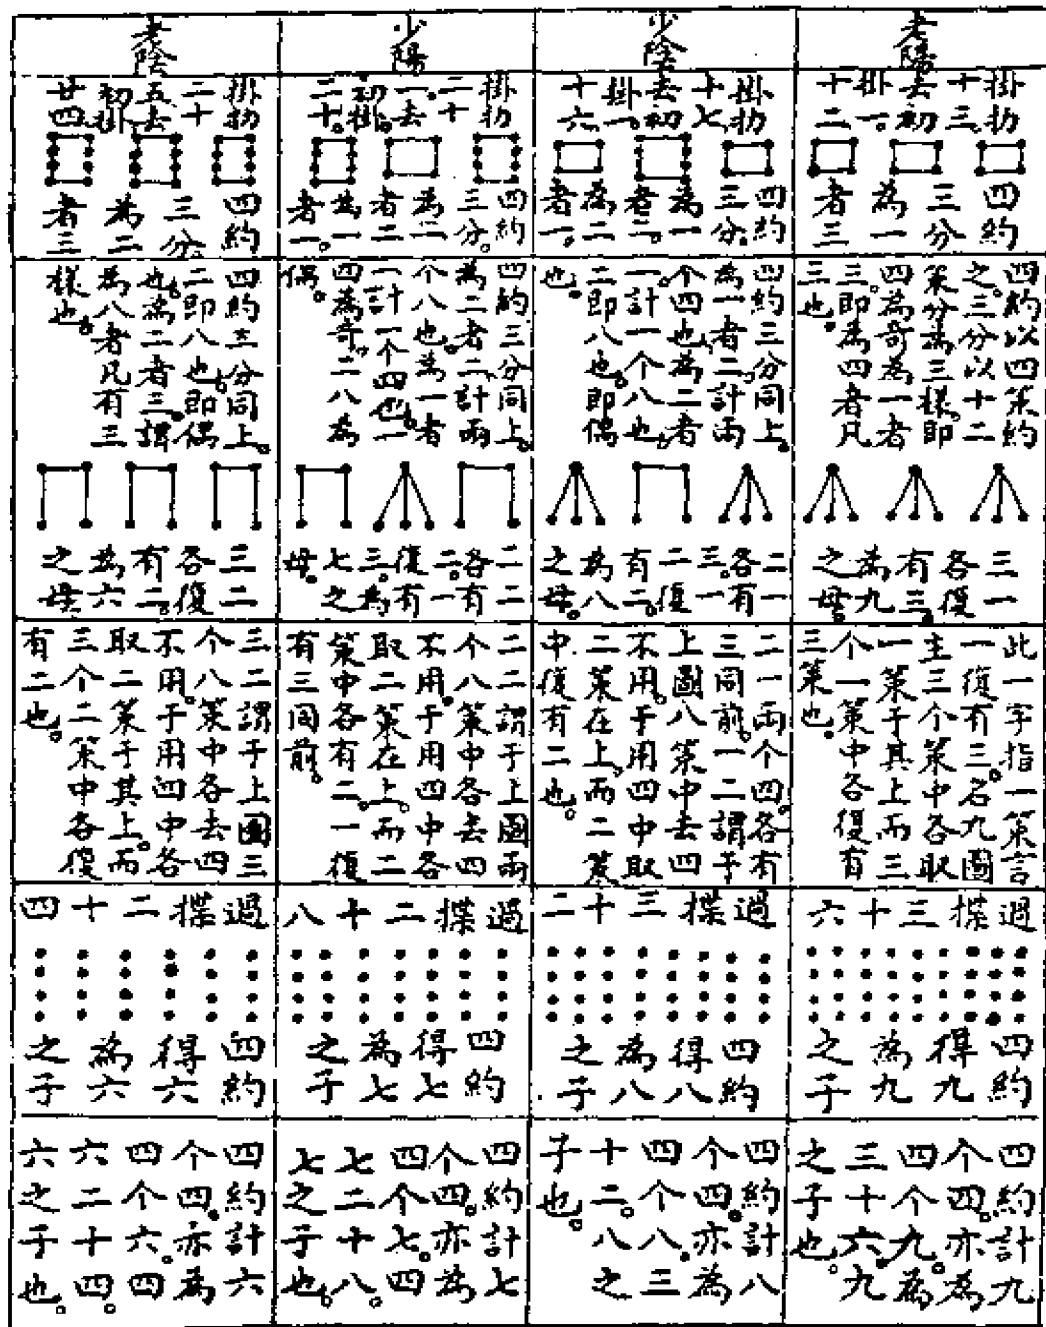 老陽
掛扐
十三。
去初
掛一。
十二
四約
三分
為一
者三
四約以四策約
之。三分以十二
策分為三樣。即
四為奇為一者
三。即為四者凡
三也。
三一
各復
有三。
為九
之母。
此一字指一策言
一復有三。名九圖
主三个策中各取
一策于其上而三
个一策中各復有
三策也。
過揲三十六
四約
得九
為九
之子
四約計九
个四。亦為
四个九。為
三十六。九
之子也。
少陰
掛扐
十七
去初
掛一。
十六
四約
三分。
為一
者二。
為二
者一。
四約三分同上。
為一者二。計兩
个四也。為二者
一。計一个八也。
二即八也。即偶
也。
二一
各有
三。一
二復
有二。
為八
之母。
二一兩个四。各有
三同前。一二謂于
上圖八策中去四
不用。于用四中取
二策在上。而二策
中復有二也。
過揲三十二
四約
得八
為八
之子
四約計八
个四。亦為
四个八。三
十二。八之
子也。
少陽
掛扐
二十
一。去
初掛。
二十。
四約
三分。
為二
者二
為一
者一。
四約三分同上。
為二者二。計兩
个八也。為一者
一。計一个四也。一
四為奇。二八為
偶。
二二
各有
二。一
復有
三。為
七之
母。
二二謂于上圖兩
个八策中各去四
不用。于用四中各
取二策在上。而二
策中各有二。一復
有三同前。
過揲二十八
四約
得七
為七
之子
四約計七
个四。亦為
四个七。四
七二十八。
七之子也。
老陰
掛扐
二十
五去
初掛
廿四
四約
三分。
為二
者三
四約三分同上。
二即八也。即偶
也。為二者三。謂
為八者凡有三
樣也。
三二
各復
有二。
為六
之母
三二謂于上圖三
个八策中各去四
不用。于用四中各
取二策于其上。而
三个二策中各復
有二也。
過揲二十四
四約
得六
為六
之子
四約計六
个四。亦為
四个六。四
六二十四。
六之子也。